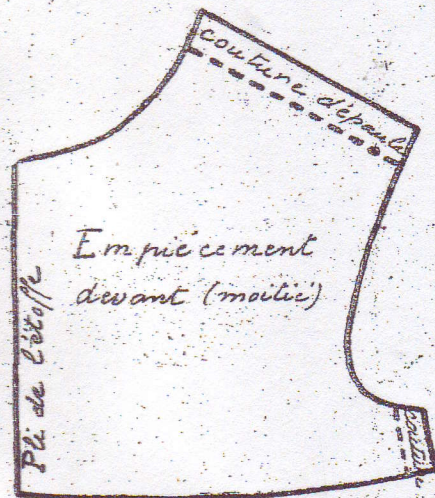 couture d'épaule
Empiècement
devant (moitié)
Pli de l'étoffe
couture